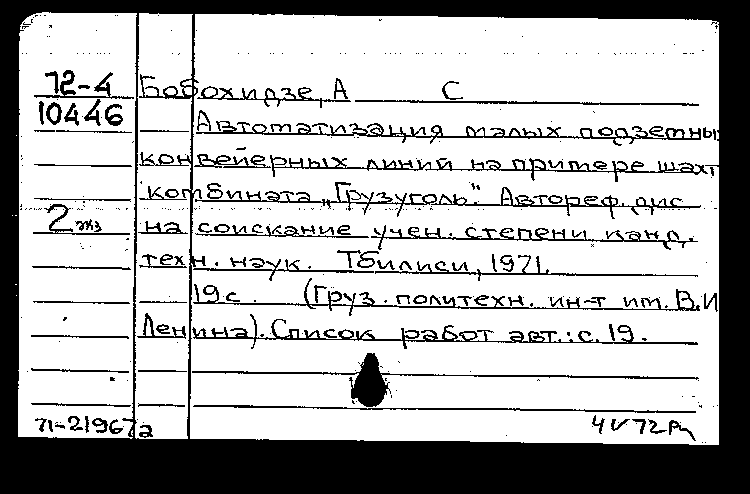 72-4 Бобохидзе, А С
10446 Автоматизация малых подземны
конвейерных линий на примере шахт
комбината „Грузуголь". Автореф. дис
2 экз на соискание учен. степени канд.
техн. наук. Тбилиси, 1971.
19 с. (Груз. политехн. ин-т им. В.И
Ленина). Список работ авт.: с. 19.
71-21967а 4 V 72